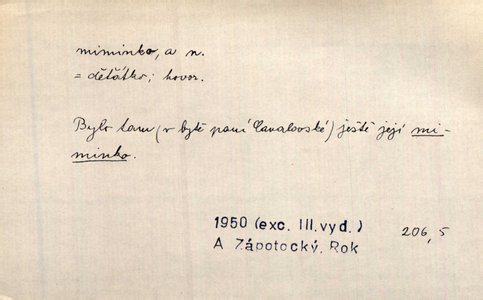 miminko, a n.
= děťátko; hovor.
Bylo tam (v bytě paní Cavalovské) ještě její mi-
minko.
1950 (exc. III. vyd.)
A Zápotocký, Rok
206,5